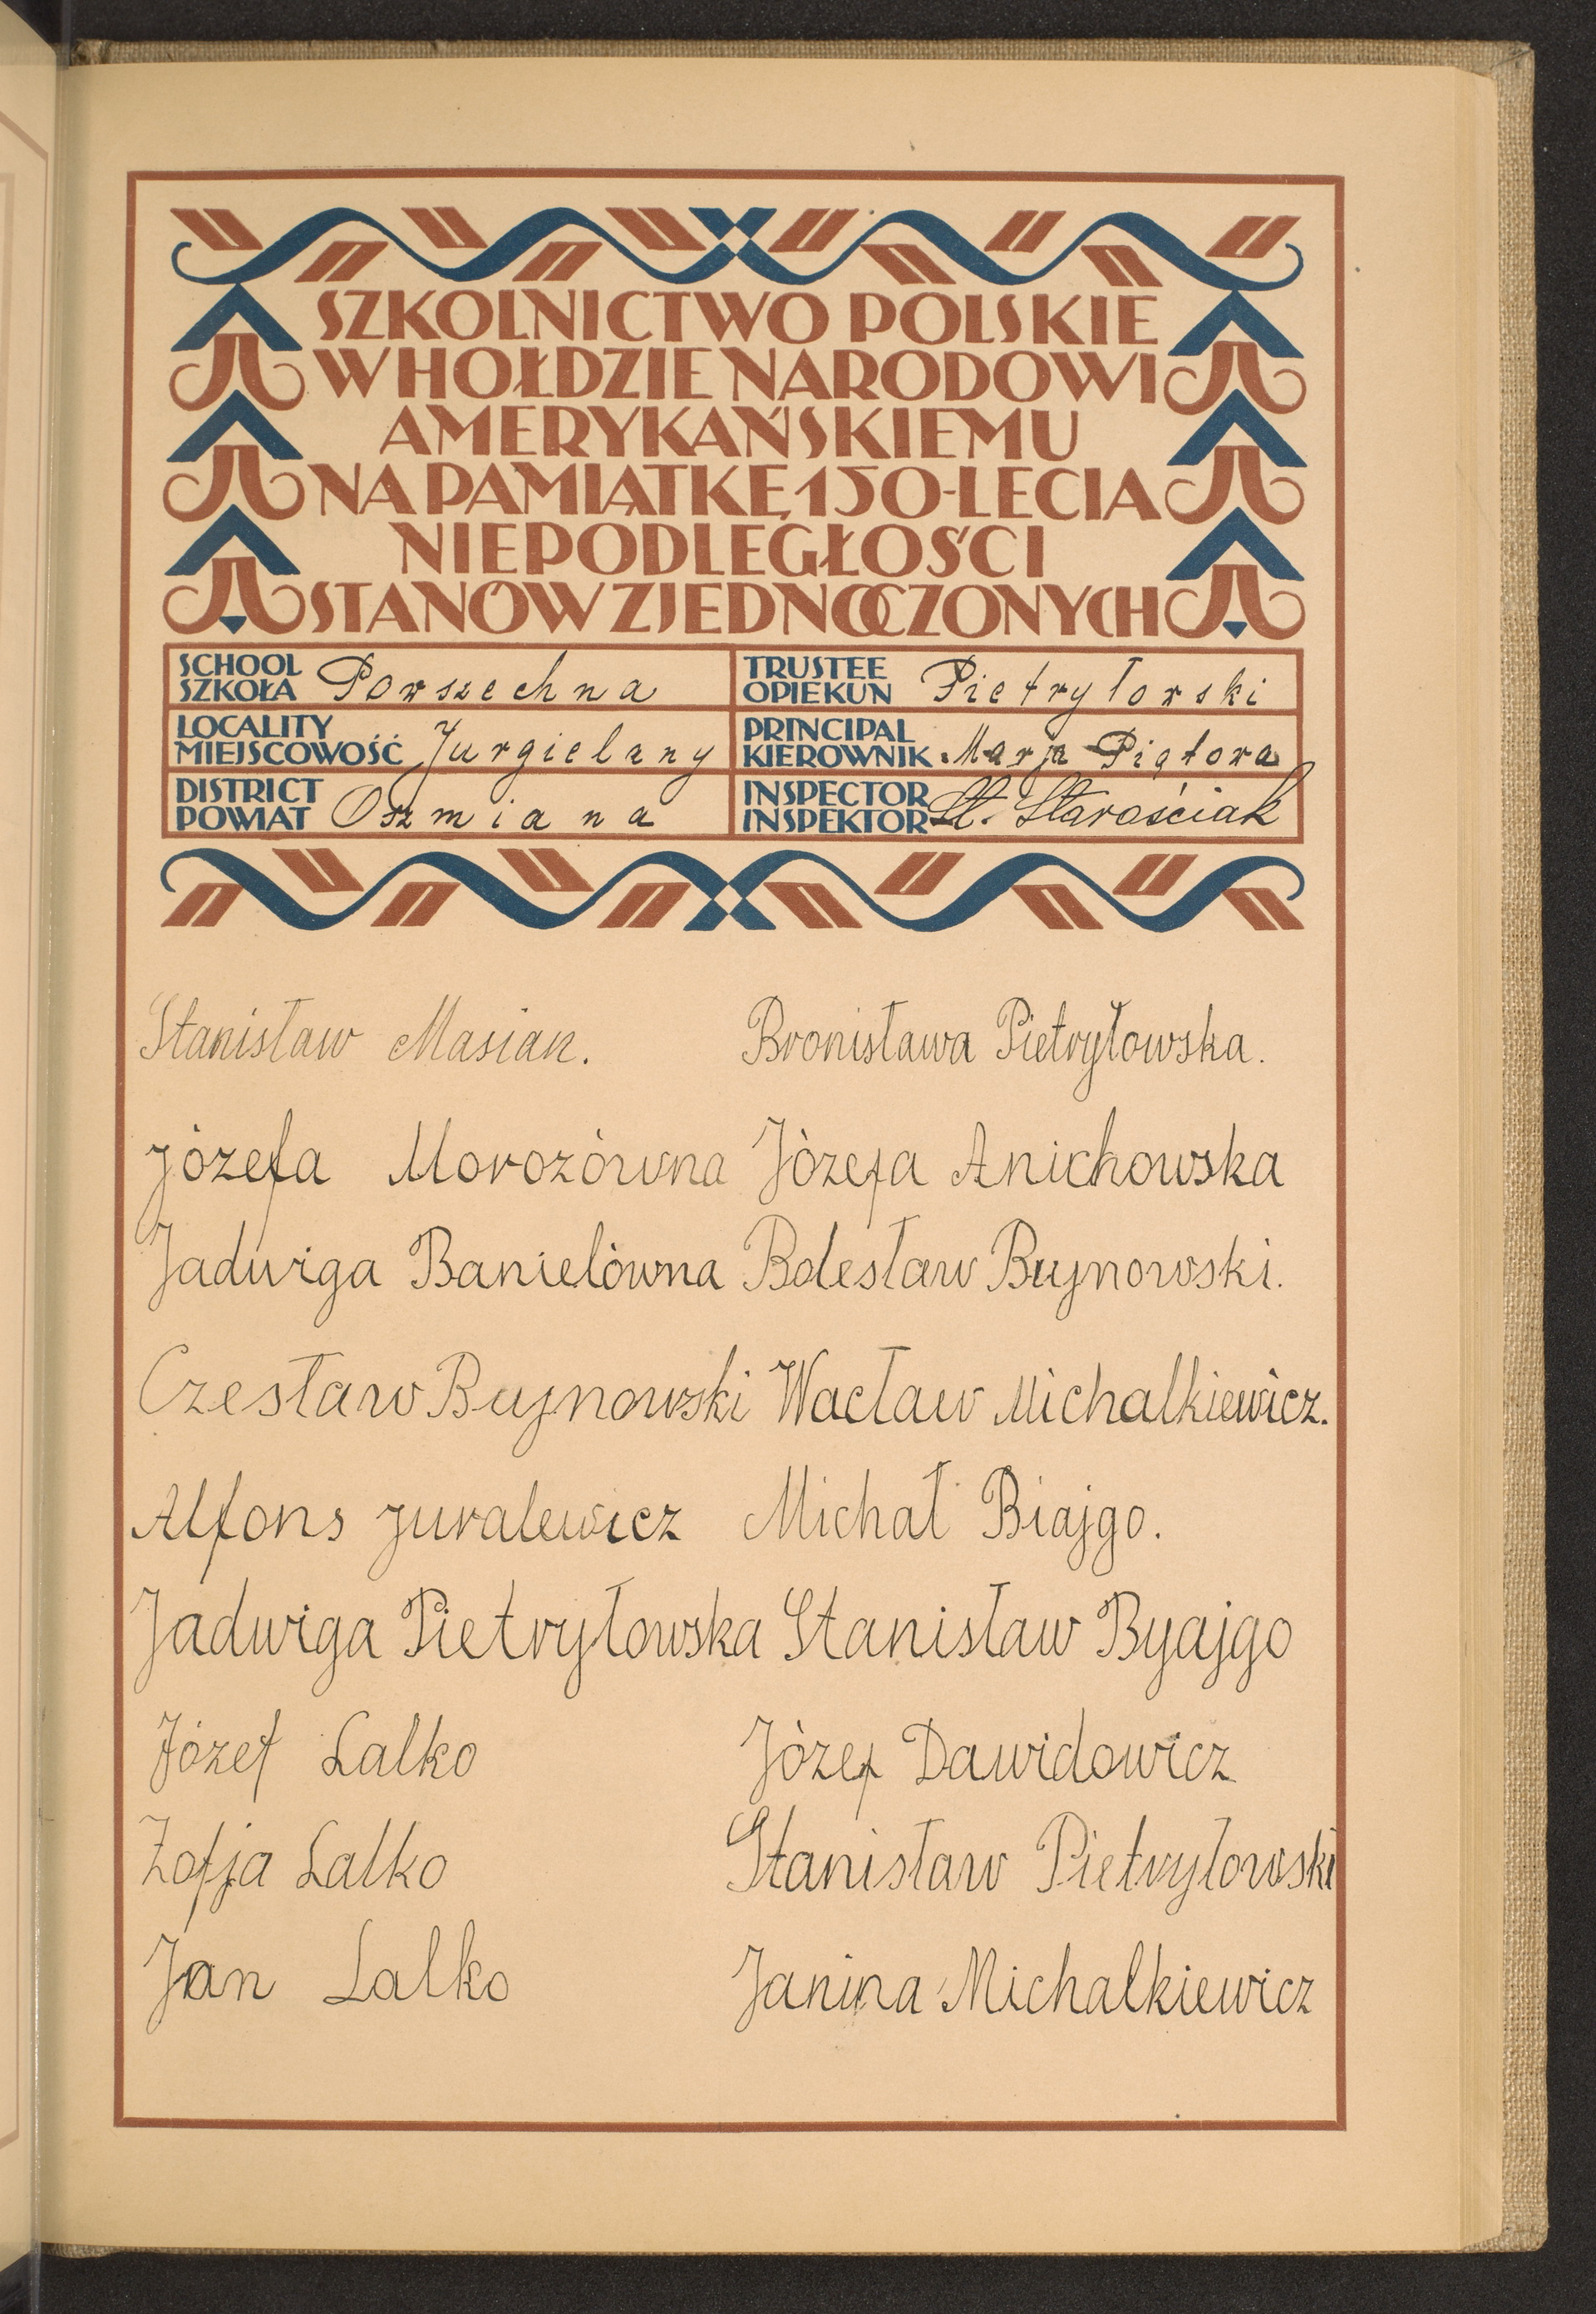 SZKOLNICTWO POLSKIE
W HOŁDZIE NARODOWI
AMERYKAŃSKIEMU
NA PAMIĄTKĘ 150-LECIA
NIEPODLEGŁOŚCI
STANÓW ZJEDNOCZONYCH
SCHOOL
SZKOŁA Powszechna
TRUSTEE
OPIEKUN Pietryłowski
LOCALITY
MIEJSCOWOŚĆ Jurgielany
PRINCIPAL
KIEROWNIK Marja Piątowa
DISTRICT
POWIAT Oszmiana
INSPECTOR
INSPEKTOR St. Starościak
Stanisław Masian. Bronisława Pietryłowska.
Józefa Morozówna Józefa Anichowska
Jadwiga Banielówna Bolesław Bujnowski.
Czesław Bujnowski Wacław Michalkiewicz.
Alfons Juralewicz Michał Biajgo.
Jadwiga Pietryłowska Stanisław Byajgo
Józef Lalko Józef Dawidowicz
Zofja Lalko Stanisław Pietryłowski
Jan Lalko Janina Michalkiewicz